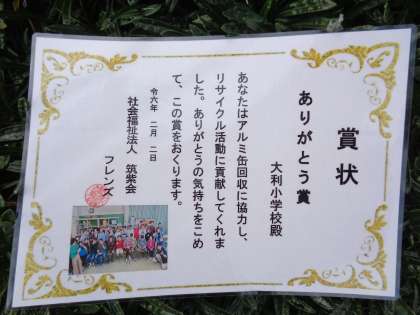 賞状
ありがとう賞
大利小学校殿
あなたはアルミ缶回収に協力し、
リサイクル活動に貢献してくれま
した。ありがとうの気持ちをこめ
て、この賞をおくります。
令六年 二月 二日
社会福祉法人 筑紫会
フレンズ